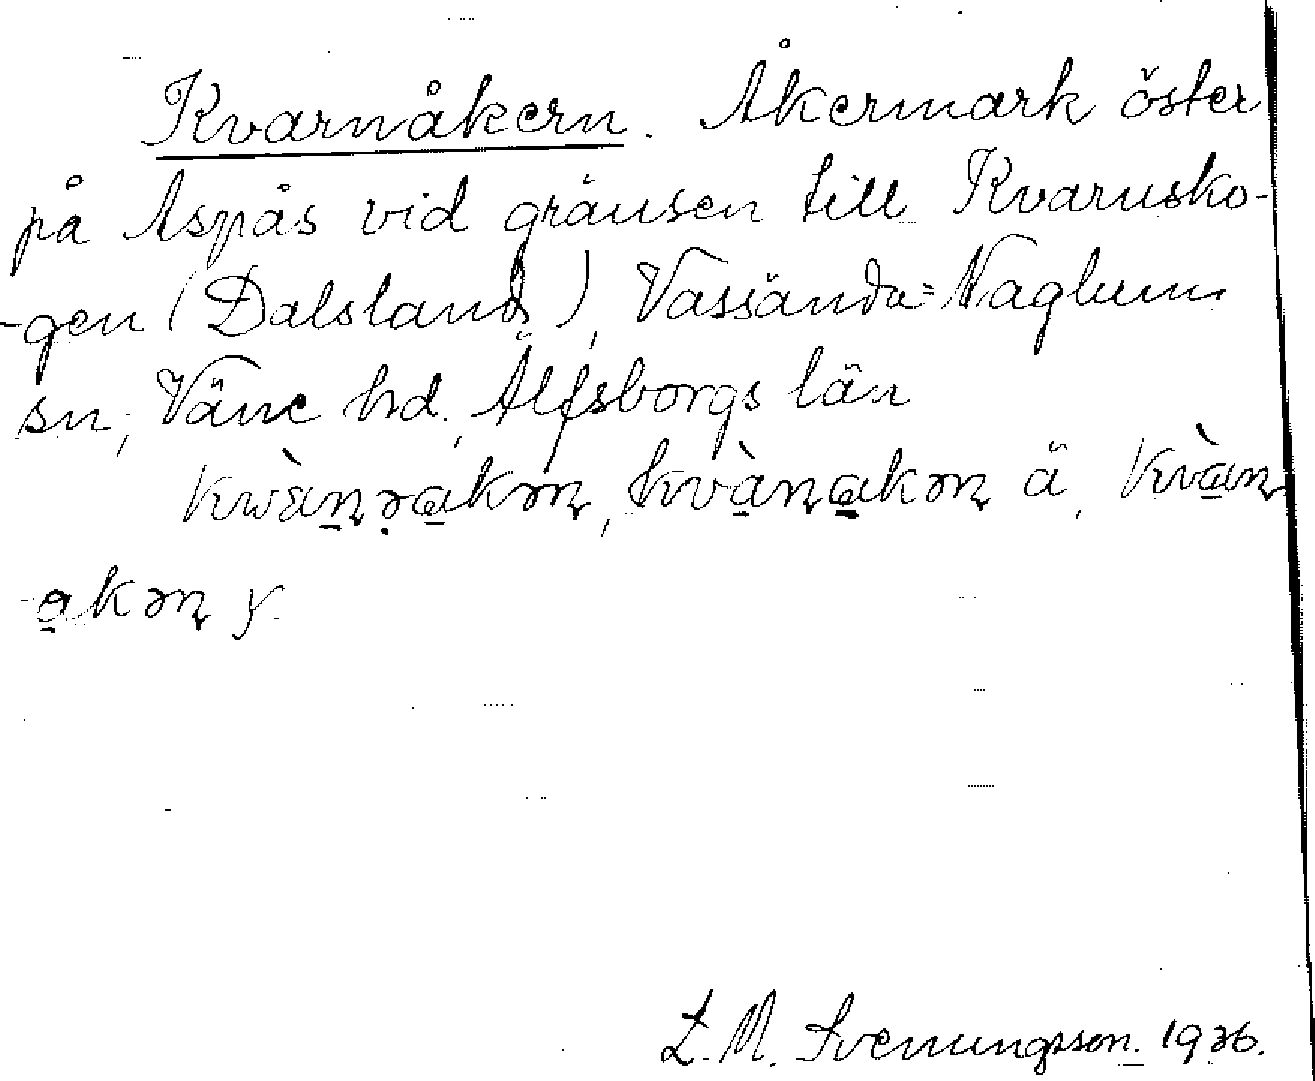 Kvarnåkern. Åkermark öster
på Aspås vid gränsen till Kvarnsko-
-gen (Dalsland), Vassända-Naglum
sn, Väne hd., Älfsborgs län
ä,
y.
L. M. Svenungsson. 1926.